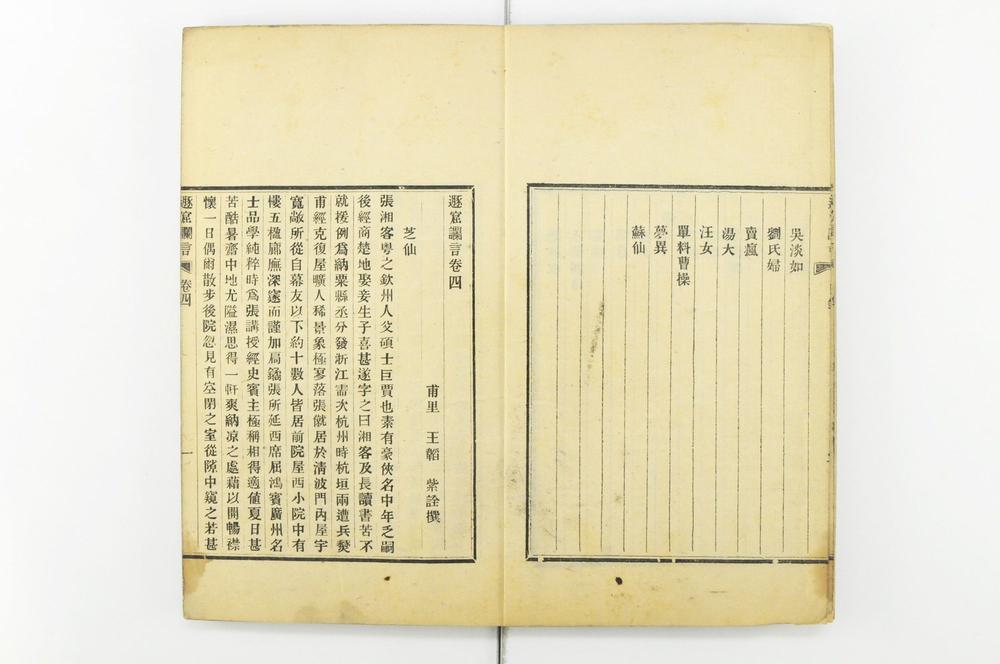 吳淡如
劉氏婦
賣瘋
湯大
汪女
單料曹操
夢異
蘇仙
遯窟讕言卷四
甫里　王韜　紫詮撰
芝仙
張湘客粵之欽州人父碩士巨賈也素有豪俠名中年乏嗣
後經商楚地娶妾生子喜甚遂字之曰湘客及長讀書苦不
就援例爲納粟縣丞分發浙江需次杭州時杭垣兩遭兵燹
甫經克復屋曠人稀景象極寥落張就居於淸波門內屋宇
寬敞所從自幕友以下約十數人皆居前院屋西小院中有
樓五楹廊廡深邃而謹加扃鐍張所延西席屈鴻賓廣州名
士品學純粹時爲張講授經史賓主極稱相得適値夏日甚
苦酷暑齋中地尤隘濕思得一軒爽納凉之處藉以開暢襟
懷一日偶爾散步後院忽見有空閉之室從隙中窺之若甚
遯窟讕言
卷四
一